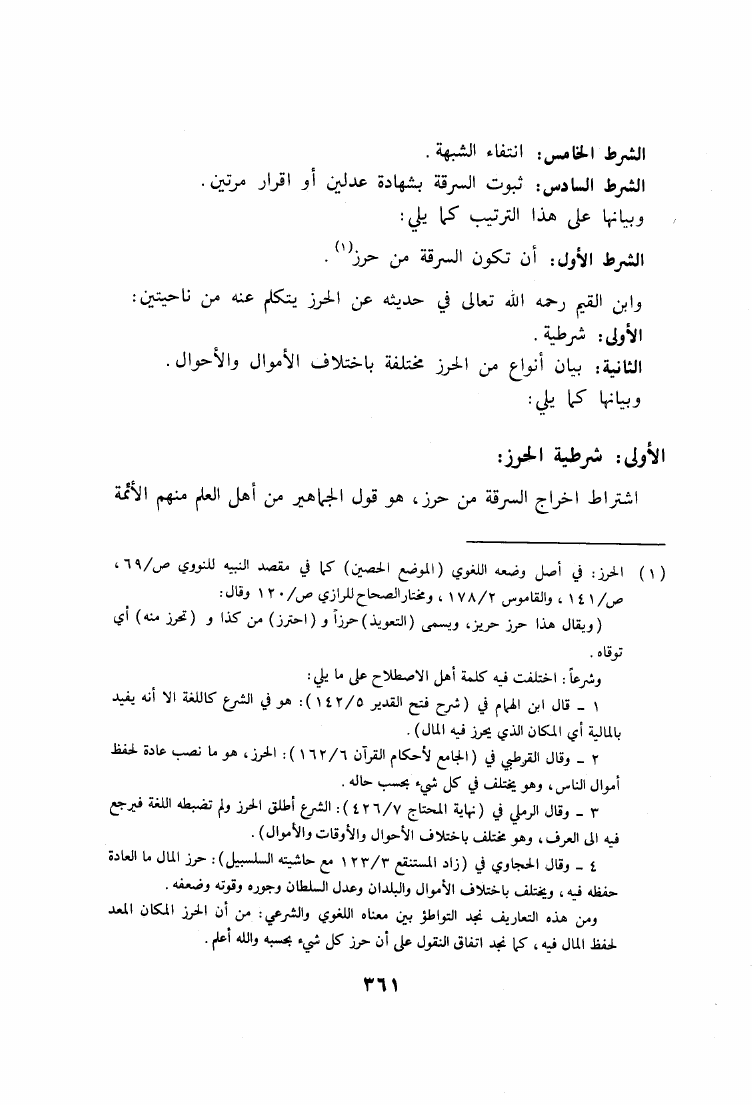 الشرط الخامس: انتفاء الشبهة.
الشرط السادس: ثبوت السرقة بشهادة عدلين أو اقرار مرتين.
وبيانها على هذا الترتيب كما يلي:
الشرط الأول: أن تكون السرقة من حرز(١).
وابن القيم رحمه الله تعالى في حديثه عن الحرز يتكلم عنه من ناحيتين:
الأولى: شرطية.
الثانية: بيان أنواع من الحرز مختلفة باختلاف الأموال والأحوال.
وبيانها كما يلي:
الأولى: شرطية الحرز:
اشتراط اخراج السرقة من حرز، هو قول الجماهير من أهل العلم منهم الأئمة
(١) الحرز: في أصل وضعه اللغوي (الموضع الحصين) كما في مقصد النبيه للنووي ص/٦٩،
ص/١٤١، والقاموس ١٧٨/٢، ومختار الصحاح للرازي ص/١٢٠ وقال:
(ويقال هذا حرز حريز، ويسمى (التعويذ) حرزاً و (احترز) من كذا و (تحرز منه) أي
توقاه.
وشرعاً: اختلفت فيه كلمة أهل الاصطلاح على ما يلي:
١ - قال ابن الهمام في (شرح فتح القدير ١٤٢/٥): هو في الشرع كاللغة الا أنه يفيد
بالمالية أي المكان الذي يحرز فيه المال).
٢ - وقال القرطبي في (الجامع لأحكام القرآن ١٦٢/٦): الحرز، هو ما نصب عادة لحفظ
أموال الناس، وهو يختلف في كل شيء بحسب حاله.
٣ - وقال الرملي في (نهاية المحتاج ٤٢٦/٧): الشرع أطلق الحرز ولم تضبطه اللغة فيرجع
فيه الى العرف، وهو مختلف باختلاف الأحوال والأوقات والأموال).
٤ - وقال الحجاوي في (زاد المستنقع ١٢٣/٣ مع حاشيته السلسبيل): حرز المال ما العادة
حفظه فيه، ويختلف باختلاف الأموال والبلدان وعدل السلطان وجوره وقوته وضعفه.
ومن هذه التعاريف نجد التواطؤ بين معناه اللغوي والشرعي: من أن الحرز المكان المعد
لحفظ المال فيه، كما نجد اتفاق النقول على أن حرز كل شيء بحسبه والله أعلم.
٣٦١